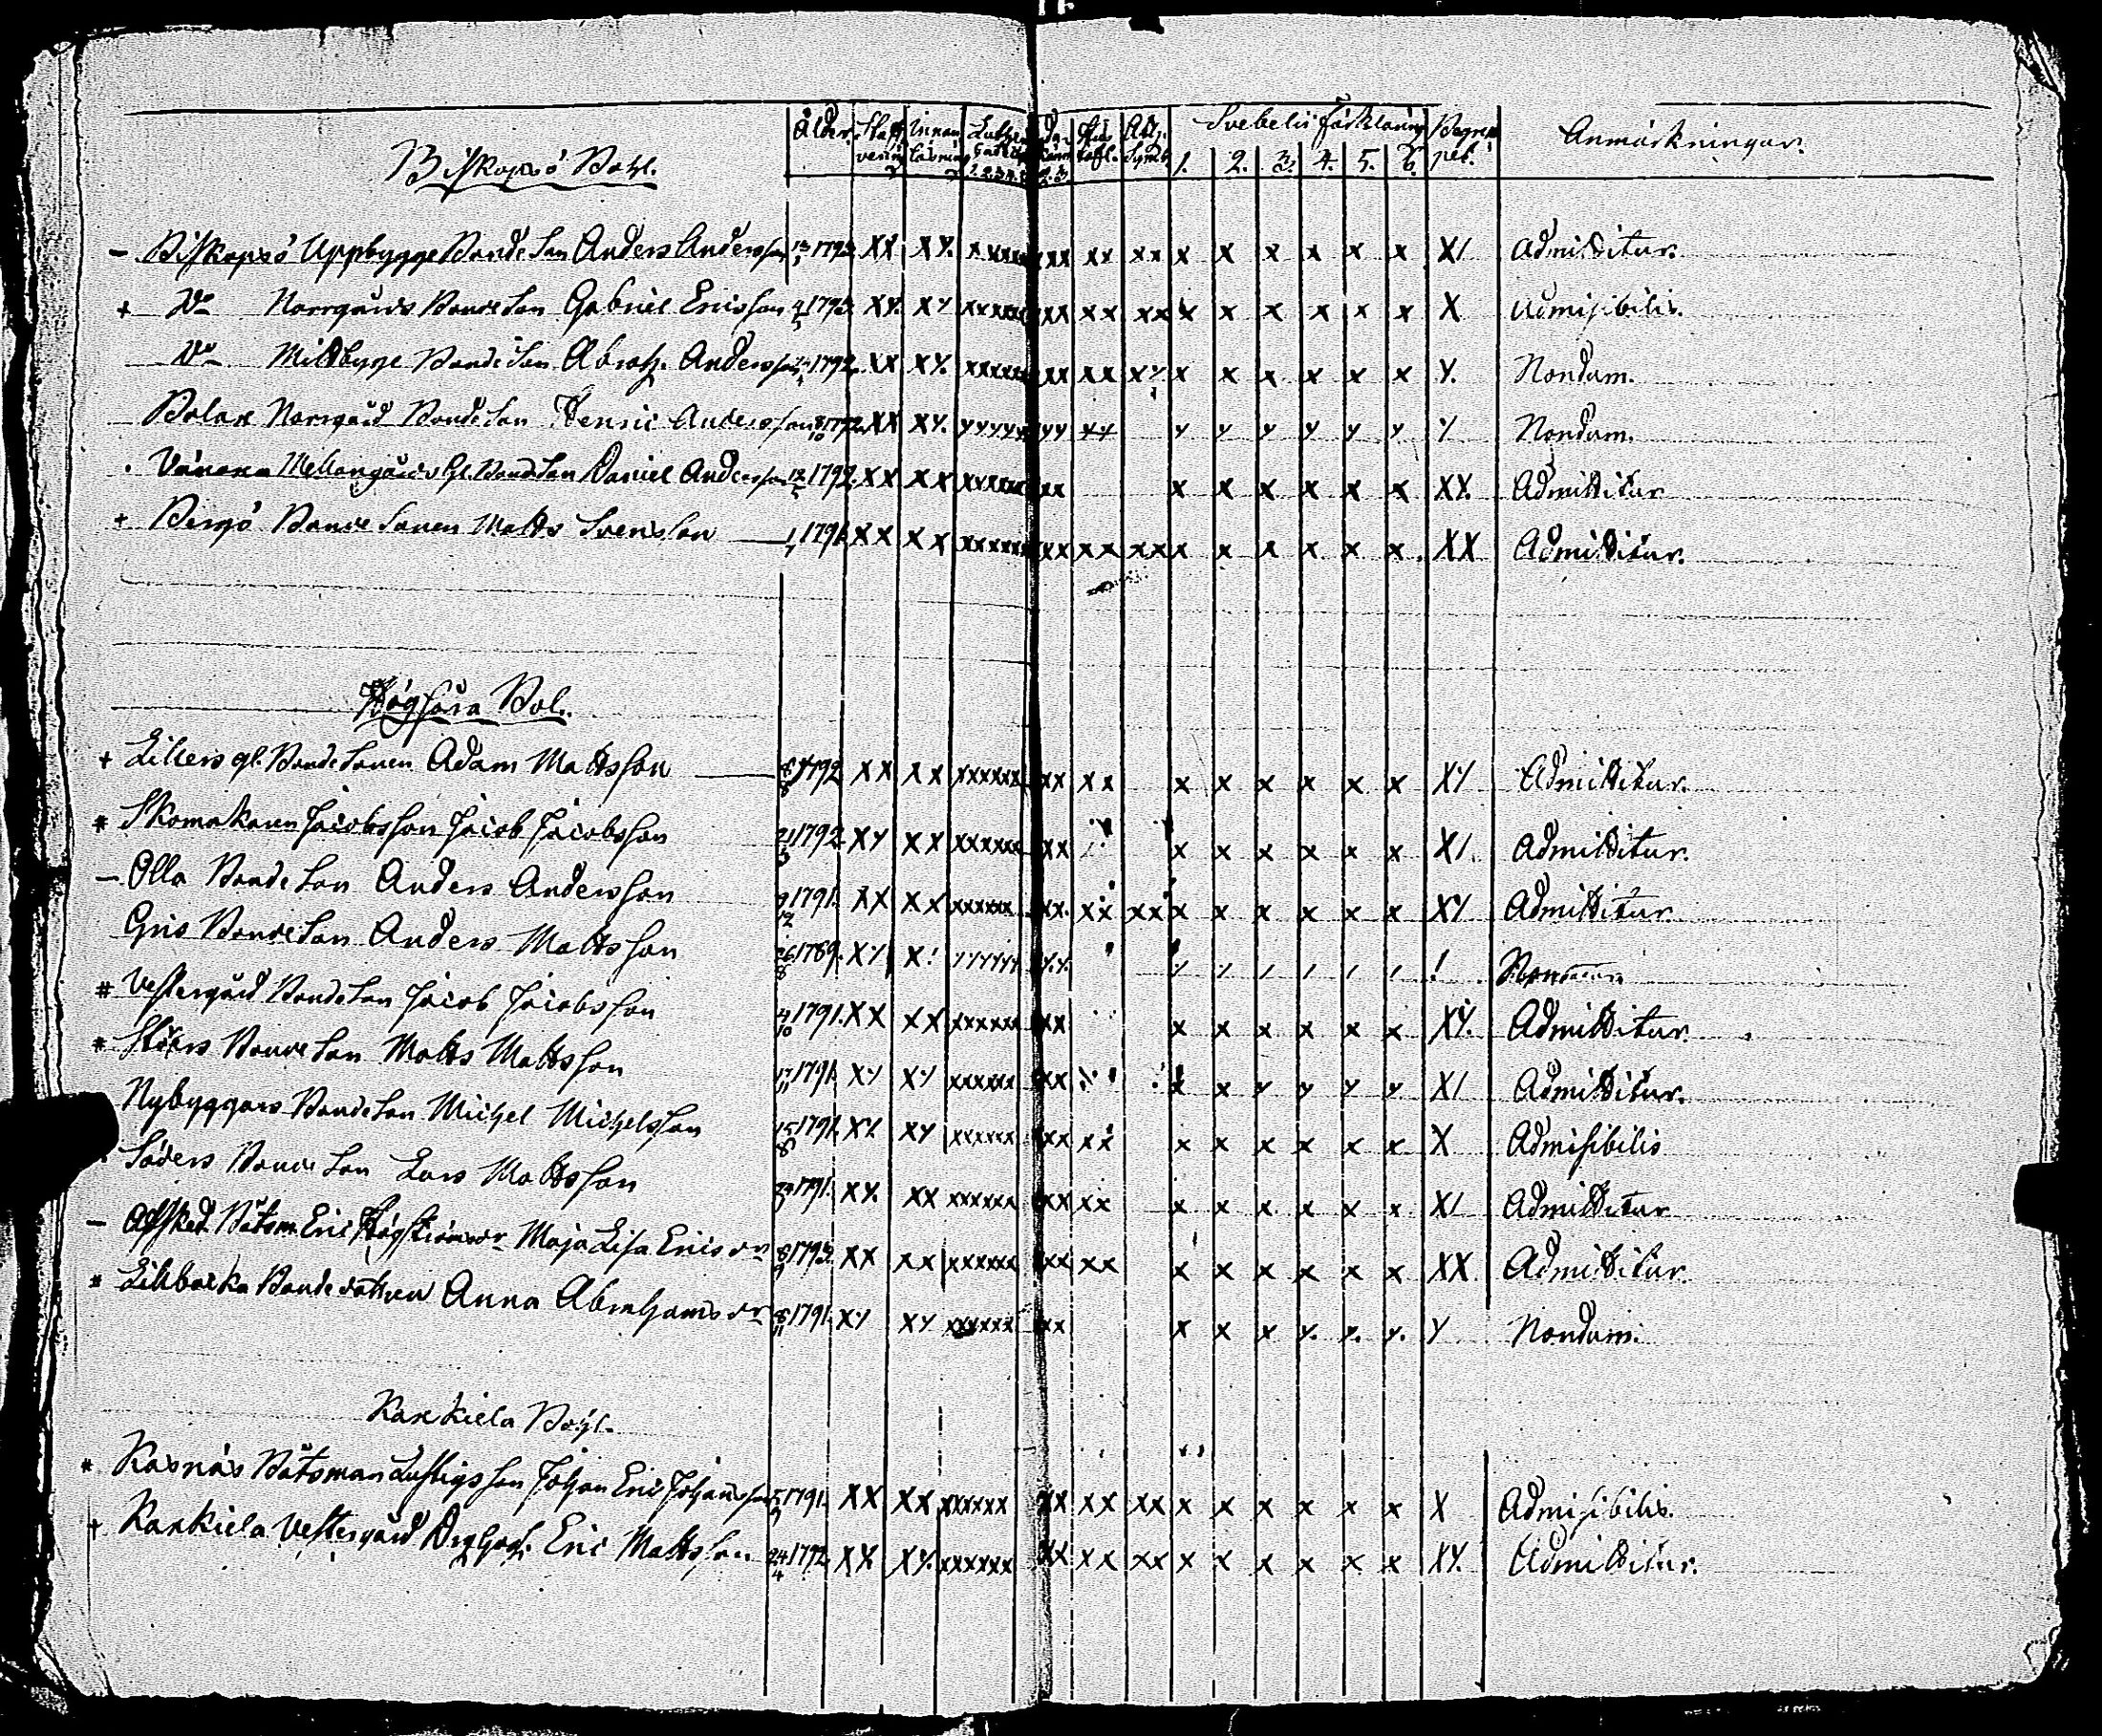 Biskopsö Bohl.
Ålder. Staf vering Innan läsning Luthe
Hus tafl. Ath. Symb.
Svebelii förklaring Begrep pet.
1. 2. 3. 4. 5. 6.
Anmärkningar.
– Biskopsö Uppbygge Bonde Son Anders Andersson 1793. XX XX. x xxxx xx xx xx x x x x x x X/ Admittitur.
+ Do Norrgårds Bonde Son Gabriel Ericsson 1793. XX. XY xxxxxx xx xx xx x x x x x x X Admissibilis.
Do Mittbygge Bonde Son Abrah. Andersson 1792. XX XY. xxxxxx xx xx xy x x x x x x Y. Nondum.
Bolax Norrgård Bonde Son Henric Andersson 1792 XX XY. yyyyyy yy yy y y y y y y Y Nondum.
Vänoxa Mellangårds Gl. Bonde Son Daniel Andersson 1792. XX XX xxxxxx xx x x x x x x XX. Admittitur
+ Bergö Bonde Sonen Matts Svensson 1/1 1791. XX XX xxxxxx xx xx xx x x x x x x XX Admittitur.
Högsåra Bol.
+ Lillers gl. Bonde Sonen Adam Mattsson 1792 XX XX xxxxxx xx xx x x x x x x XY Admittitur.
# Skomakaren Jacobsson Jacob Jacobsson 21 1792 XY XX xxxxxx xx x x x x x x X/. Admittitur.
– Olla Bonde Son Anders Andersson 9/12 1791. XX XX xxxxxx xx. xx xx x x x x x x XY Admittitur
Gris Bonde Son Anders Mattsson 26/8 1789. XY X/ yyyyyy y.y. / / / / / / /
# Vestergård Bonde Son Jacob Jacobsson 4/10 1791. XX XX xxxxxx xx x x x x x x XY. Admittitur.
# Stöbers Bonde Son Matts Mattsson 17/11 1791 XY XY xxxxxx xx x x y y y y X/ Admittitur.
Nybyggars Bonde Son Michel Michelsson 15/8 1791. XX. XY xxxxxx xx xx x x x x x x X Admissibilis
Söders Bonde Son Lars Mattsson 1791. XY. XX xxxxxx xx xx x x x x x x X/ Admittitur
– Afsked. Båtsm. Eric Högströms dr Maja Lisa Erics dr 1793. XX XX xxxxxx xx xx x x x x x x XX Admittitur.
# Lillbacka Bonde dottren Anna Abrahams dr 8/11 1791. XY XY xxxxxx xx x x x y. y. y. Y Nondum.
Karkiela Bohl.
# Kasnäs Båtsman Lustigs Son Johan Eric Johansson 1791. XX XX xxxxxx xx xx xx x x x x x x X Admissibilis.
+ Karkiela Vestergård Eric Mattsson 24/4 1792. XX XY. xxxxxx xx xx xx x x x x x x XY. Admittitur.